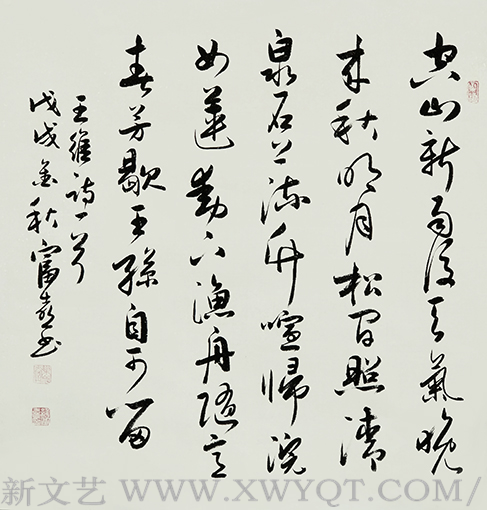 空山新雨後天氣晚
来秋明月松间照清
泉石上流竹喧歸浣
女蓮動下漁舟隨意
春芳歇王孫自可留
王維詩一首
戊戌金秋富书
新文艺 WWW.XWYQT.COM/